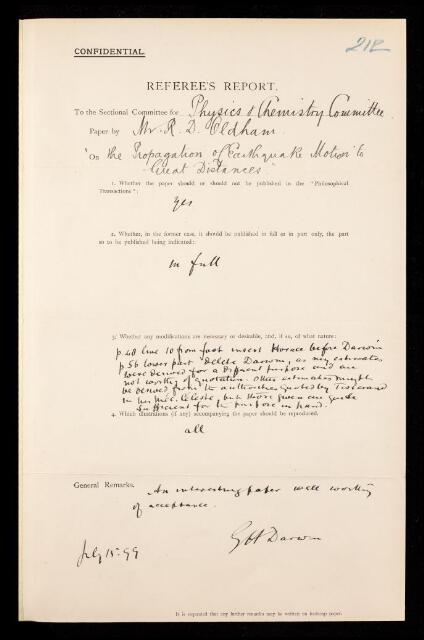 CONFIDENTIAL.
218
REFEREE'S REPORT.
To the Sectional Committee for Physics & Chemistry Committee
Paper by Mr. R. D. Oldham
"On the Propagation of Earthquake Motion to
Great Distances"
1. Whether the paper should or should not be published in the "Philosophical
Transactions":
yes
2. Whether, in the former case, it should be published in full or in part only, the part
so to be published being indicated:
in full
3. Whether any modifications are necessary or desirable, and, if so, of what nature:
p. 48 line 10 from foot insert Horace before Darwin
p 56 lower part delete Darwin, as my estimates
were derived for a different purpose and are
not worthy of quotation. Other estimates might
be derived from the authorities quoted by Tisserand
in his Mec. Celeste, but those given are quite
sufficient for the purpose in hand.
4. Which illustrations (if any) accompanying the paper should be reproduced.
all
General Remarks.
An interesting paper well worthy
of acceptance.
G H Darwin
July 15. 99
It is requested that any further remarks may be written on foolscap paper.